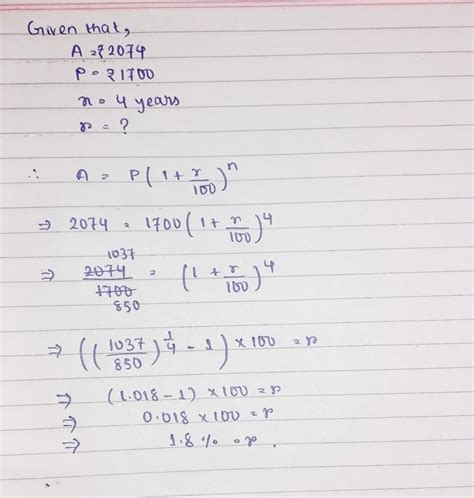 Given that,
A = ₹2074
P = ₹1700
n = 4 years
r = ?
∴ A = P(1 + r/100)^n
⇒ 2074 = 1700(1 + r/100)^4
1037
⇒ 2074/1700 = (1 + r/100)^4
850
⇒ ((1037/850)^1/4 - 1) × 100 = r
⇒ (1.018 - 1) × 100 = r
⇒ 0.018 × 100 = r
⇒ 1.8 % = r .